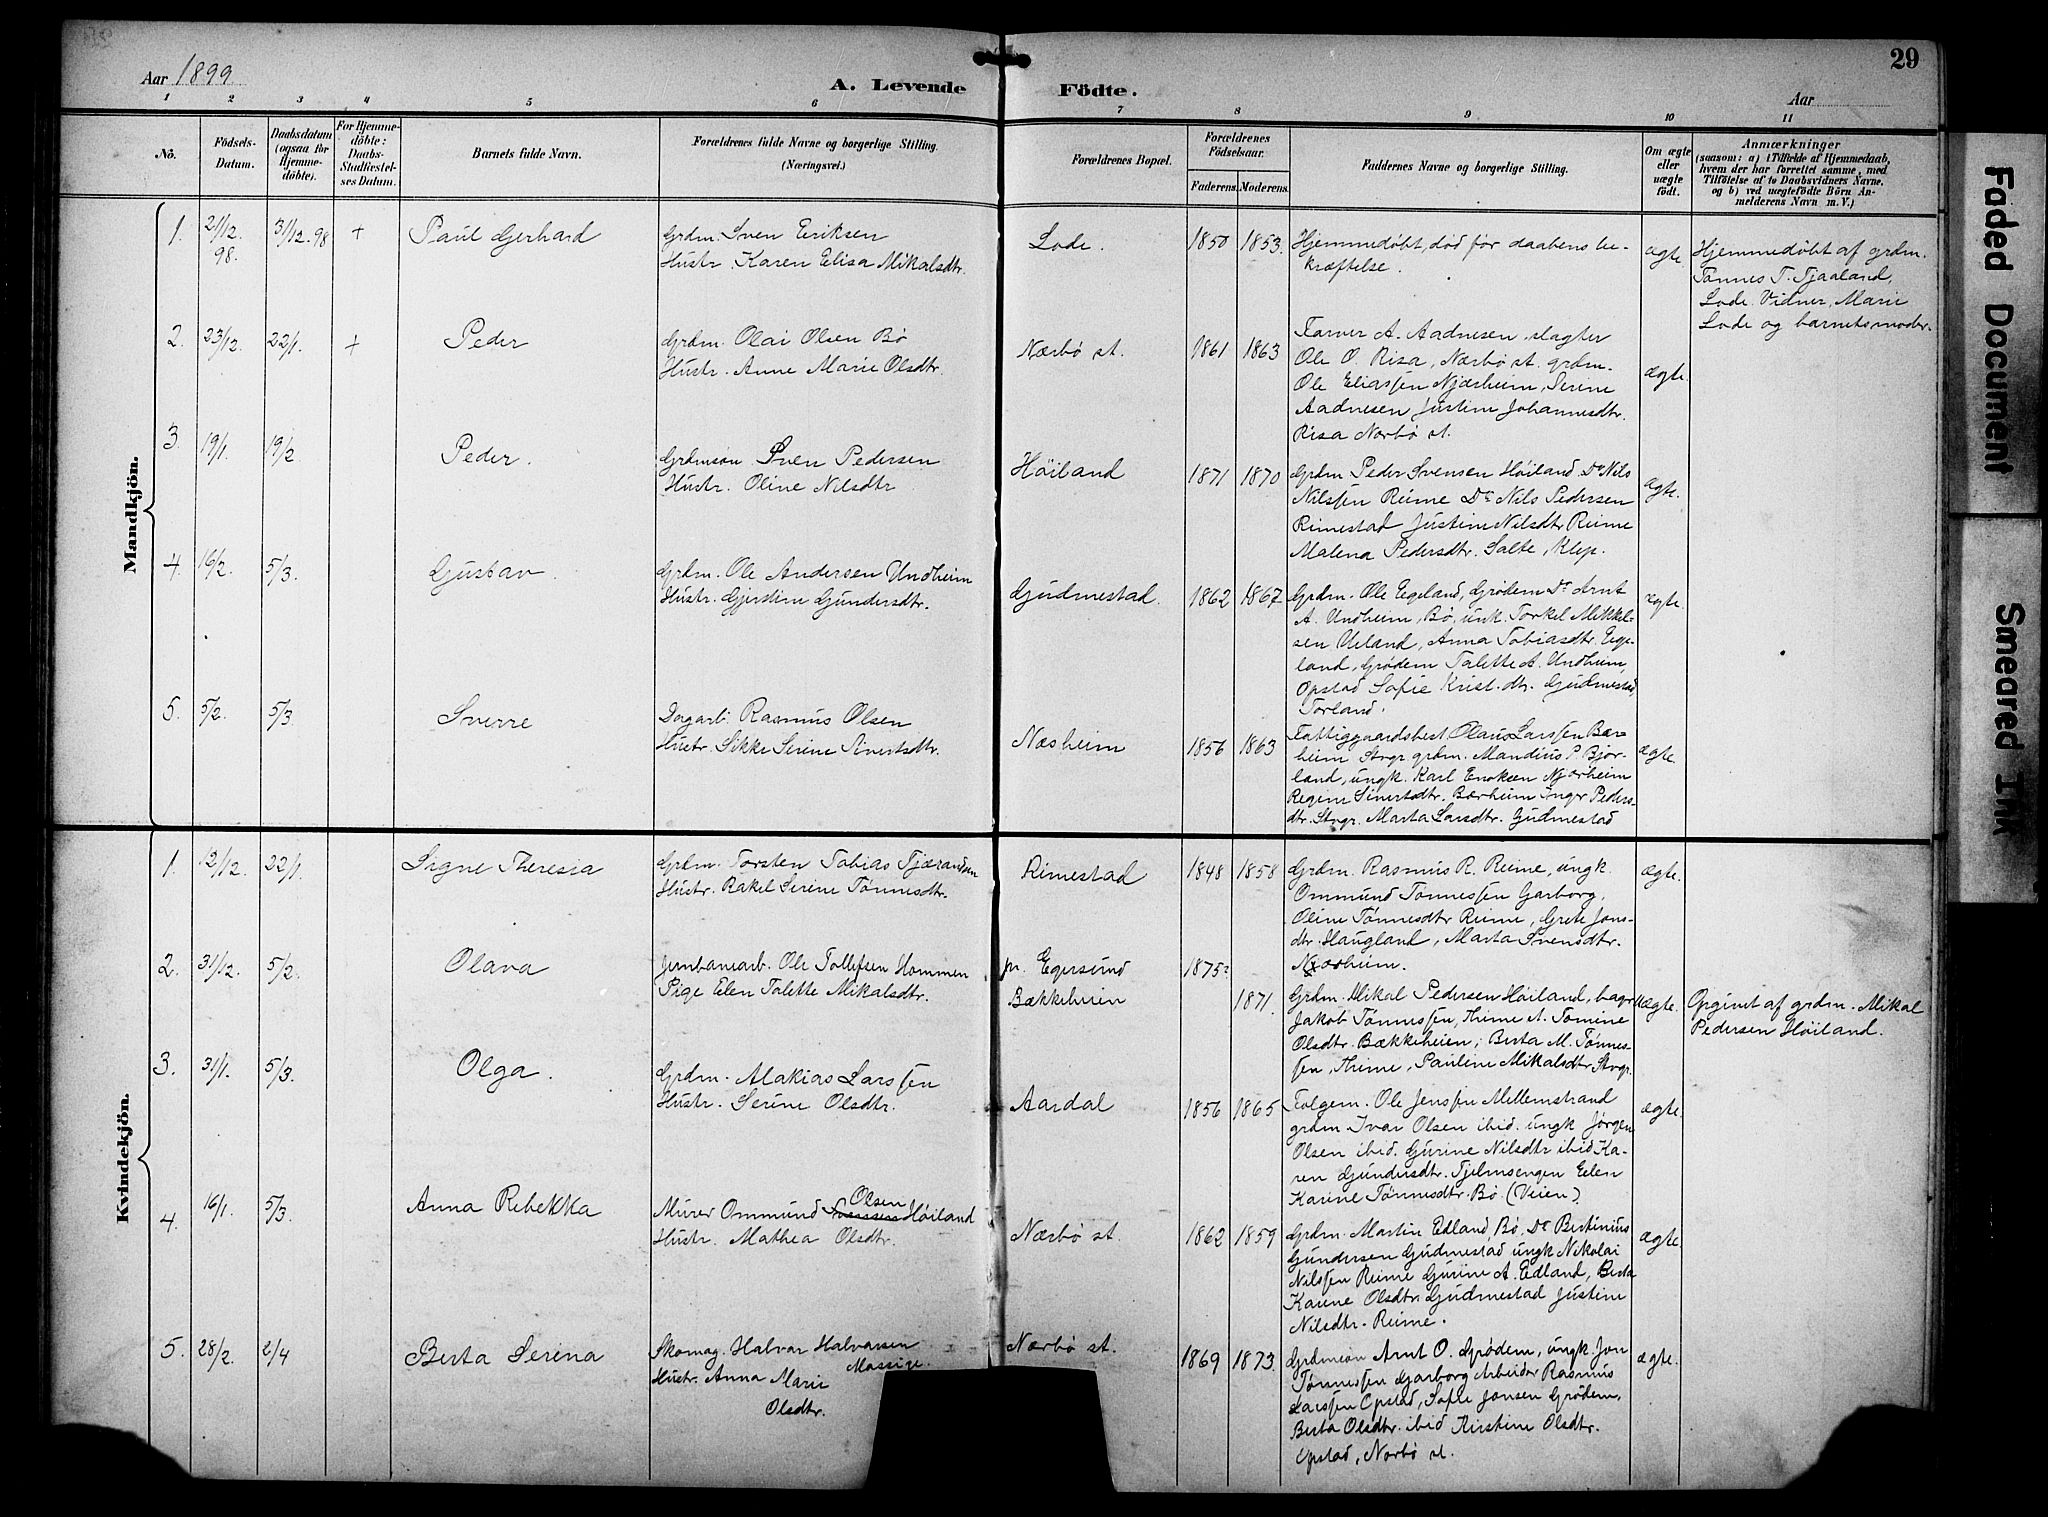 Aar 1899
A. Levende Födte.
Aar
29
1 2 3 4 5 6 7 8 9 10 11
No.
Födsels-Datum.
Daabsdatum (ogsaa for Hjemme-döbte).
For Hjemme-döbte: Daabs-Stadfæstel-ses Datum.
Barnets fulde Navn.
Forældrenes fulde Navne og borgerlige Stilling. (Næringsvei.)
Forældrenes Bopæl.
Forældrenes Födselsaar.
Faderens. Moderens.
Faddernes Navne og borgerlige Stilling.
Om ægte eller uægte födt.
Anmærkninger
(saasom: a) i Tilfælde af Hjemmedaab, hvem der har forrettet samme, med Tilföielse af to Daabsvidners Navne, og b) ved uægtefödte Börn An-melderens Navn m. V.)
Mandkjön.
1. 21/12 98. 31/12 98 + Paul Gerhard
Grdm. Sven Eriksen
Hustr. Karen Elisa Mikalsdtr.
Lode. 1850 1853.
Hjemmedøbt, død før daabens be-
kræftelse.
ægte.
Hjemmedøbt af grdm.
Tønnes T. Tjaaland,
Lode. Vidner, Marie
Lode og barnets moder.
2. 23/12. 22/1. + Peder
Grdm. Olai Olsen Bø
Hustr. Anne Marie Olsdtr.
Nærbö st. 1861 1863
Farver A. Aadnesen, slagter
Ole O. Risa, Nærbö st. grdm.
Ole Eliassen Njærheim, Serine
Aadnesen, Justine Johannesdtr.
Risa Nærbö st.
ægte.
3. 19/1. 19/2 Peder.
Grdmsøn Sven Pedersen
Hustr. Oline Nilsdtr
Höiland 1871 1870
Grdm. Peder Svensen Höiland. Do Nils
Nilssen Reime Do Nils Pedersen
Rimestad Justine Nilsdtr Reime
Malena Pedersdtr. Salte, Klep.
ægte.
4. 16/2. 5/3. Gustav
Grdm. Ole Andersen Undheim
Hustr. Gjertine Gundersdtr.
Gudmestad. 1862 1867
Grdm. Ole Egeland, Grødem Do Arnt
A. Undheim, Bø, unk. Torkel Mikkel-
sen Ueland, Anna Tobiasdtr. Ege-
land, Grødem Talette A. Undheim,
Opstad Sofie Krist.dtr. Gudmestad
Torland.
ægte.
5. 5/2. 5/3. Sverre
Dagarb. Rasmus Olsen
Hustr. Sikke Serine Sivertsdtr.
Næsheim 1856 1863
Fattiggaardsbest Olaus Larssen Bær-
heim Stvgr grdm. Mandius P. Bjor-
land, ungk. Karl Enoksen Njærheim
Regine Sivertsdtr. Bærheim Inger Peders-
dtr. Stvgr. Marta Larsdtr. Gudmestad
ægte.
Kvindekjön.
1. 12/12. 22/1. Signe Theresia
Grdm. Torsten Tobias Tjærandsen
Hustr. Rakel Serine Tønnesdtr.
Rimestad 1848 1858
Grdm. Rasmus R. Reime, ungk.
Ommund Tønnessen Garborg.
Oline Tønnesdtr Reime, Grete Jons-
dtr. Haugland, Marta Svensdtr.
Nærheim.
ægte.
2. 31/12. 5/2. Olava
Jernbanearb. Ole Tollefsen Hommen
Pige Elen Talette Mikalsdtr.
pr. Egersund
Bækkeheien
1875? 1871.
Grdm. Mikal Pedersen Höiland, bager
Jakob Tønnessen, Thime A. Tomine
Olsdtr. Bækkeheien, Berta M. Tønnes-
sen, Thime, Pauline Mikalsdtr Stvgr.
uægte.
Opgivet af grdm. Mikal
Pedersen Höiland.
3. 31/1. 5/3. Olga.
Grdm. Malakias Larssen
Hustr. Serine Olsdtr.
Aardal 1856 1865
Folgem. Ole Jenssen Mellemstrand
grdm Ivar Olsen ibid. ungk Jørgen
Olsen ibid. Gurine Nilsdtr ibid Ka-
ren Gundersdtr. Tjelmsengen Elen
Karine Tønnesdtr. Bø (Veien).
ægte.
4. 16/1. 5/3. Anna Rebekka
Murer Ommund Olsen Höiland
Hustr. Mathea Olsdtr.
Nærbö st. 1862 1859
Grdm. Martin Edland, Bø. Do Bertinius
Gundersen Gudmestad ungk Nikolai
Nilssen Reime Gurine A. Edland, Berta
Karine Olsdtr. Gudmestad Justine
Nilsdtr. Reime.
ægte.
5. 28/2. 2/4 Berta Serina
Skomag. Halvar Halvarsen
Massige.
Hustr. Anna Marie
Olsdtr.
Nærbö st. 1869 1873
Grdmsøn Arnt O. Grødem, ungk. Jon
Tønnessen Garborg Arbeider Rasmus
Larssen Opstad, Sofie Jonsen Grødem,
Berta Olsdtr. ibid Kirstine Olsdtr.
Opstad, Nærbö st.
ægte.
Faded Document
Smeared Ink